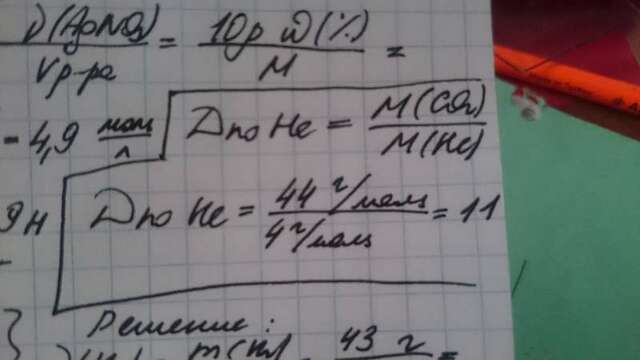 ν(AgNO₃) / Vр-ра = 10ρ ω(%) / M =
= 4,9 моль/л
D по He = M(CO₂) / M(He)
9 н
D по He = 44 г/моль / 4 г/моль = 11
Решение:
43 г =